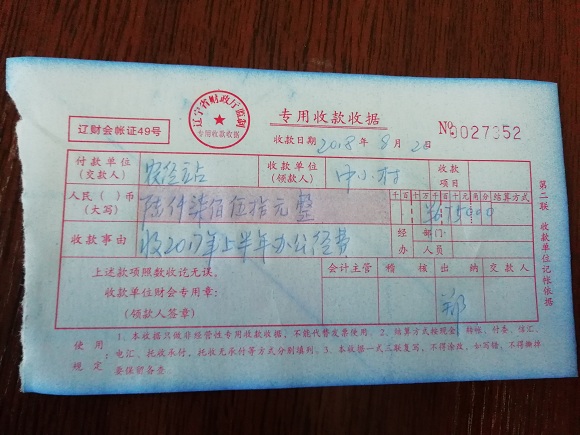 辽宁省财政厅监制
专用收款收据
专用收款收据
辽财会帐证49号
收款日期 2018年8月2日
№0027352
付款单位
(交款人)
农经站
收款单位
(领款人)
中小村
收款
项目
人民( )币
(大写)
陆仟柒佰伍拾元整
千 百 十 万 千 百 十 元 角 分
¥675000
结算方式
收款事由
收2017年上半年办公经费
经 部门
办 人员
上述款项照数收讫无误。
收款单位财会专用章:
(领款人签章)
会计主管 稽 核 出 纳 交款人
郑
第二联 收款单位记帐依据
使用
规定
1、本收据只做非经营性专用收款收据,不能代替发票使用。2、结算方式按现金、转帐、付委、信汇、
电汇、托收承付、托收无承付等方式分别填列。3、本收据一式三联复写,不得涂改,如写错,不得撕掉
要保留备查